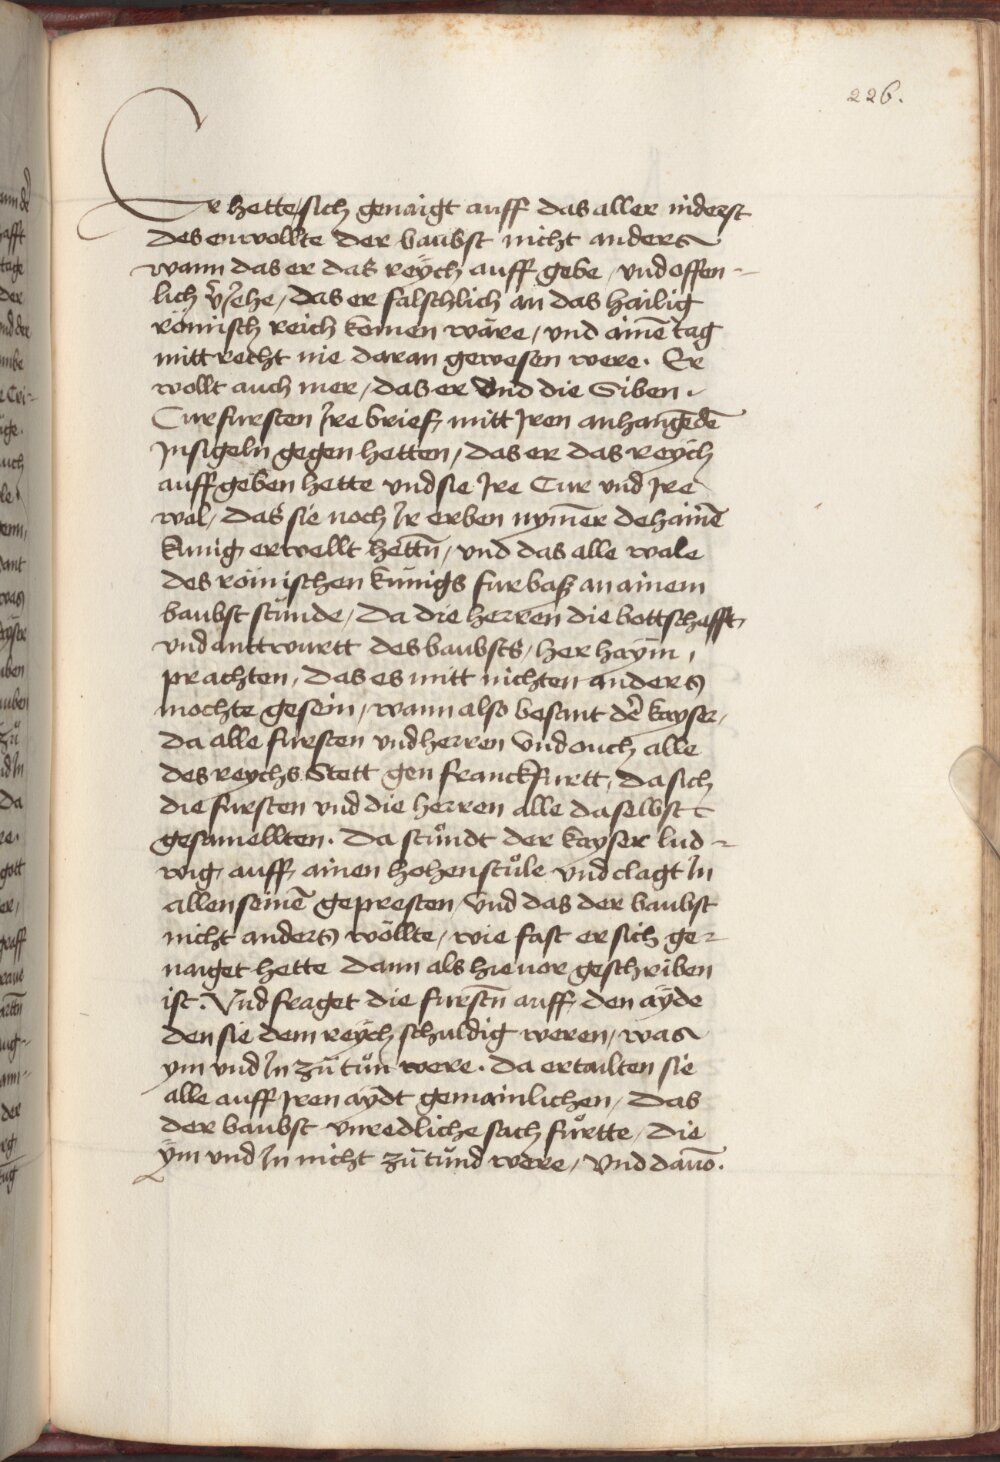 226.
Er hette sich genaigt auff das aller inderst
des enwollte der baubst nicht anders
wann das er das reÿch auff gebe / vnd offen-
lich v̄Jehe / das er falschlich an das hailig
römisch reich komen wäre / vnd ainē tag
mitt recht nie daran gewesen were. Er
wollt auch mer / das er vnd die Siben
Curfursten Jre brief mitt Jren anhangēdē
Jnsigeln gegen hetten / das er das reÿch
auffgeben hette vnd sie Jre Cur vnd Jre
wal / das sie noch Jr erben nymer dehainē
künig erwellt hettn̄ / vnd das alle wale
des römischen künigs furbasz an ainem
baubst stünde / Da die herren die bottschafft
vnd anttwurtt des baubsts / her haym
prachten / das es mitt nichten anders
mochte gesein / wann also besant d̄e kayser /
da alle fursten vnd herren vnd auch alle
des reychs Stett gen franckfurtt / da sich
die fursten vnd die herren alle daselbst
gesamellten. Da stůndt der kayser lud-
wig auff ainen hohen stůle vnd clagt Jn
allen seinē gepresten / vnd das der baubst
nicht anders wöllte / wie fast er sich ge-
naiget hette dann als hieuor geschriben
ist. Vnd fraget die furstn̄ auff den ayde
den sie dem reÿch schuldig weren / was
ym vnd Jn zů tůn were. Da ertailten sie
alle auff Jren aydt gemainlichen / Das
der baubst vnredliche sach fůrtte / die
ÿm vnd Jn nicht zů tůnd were / Vnd dauō.